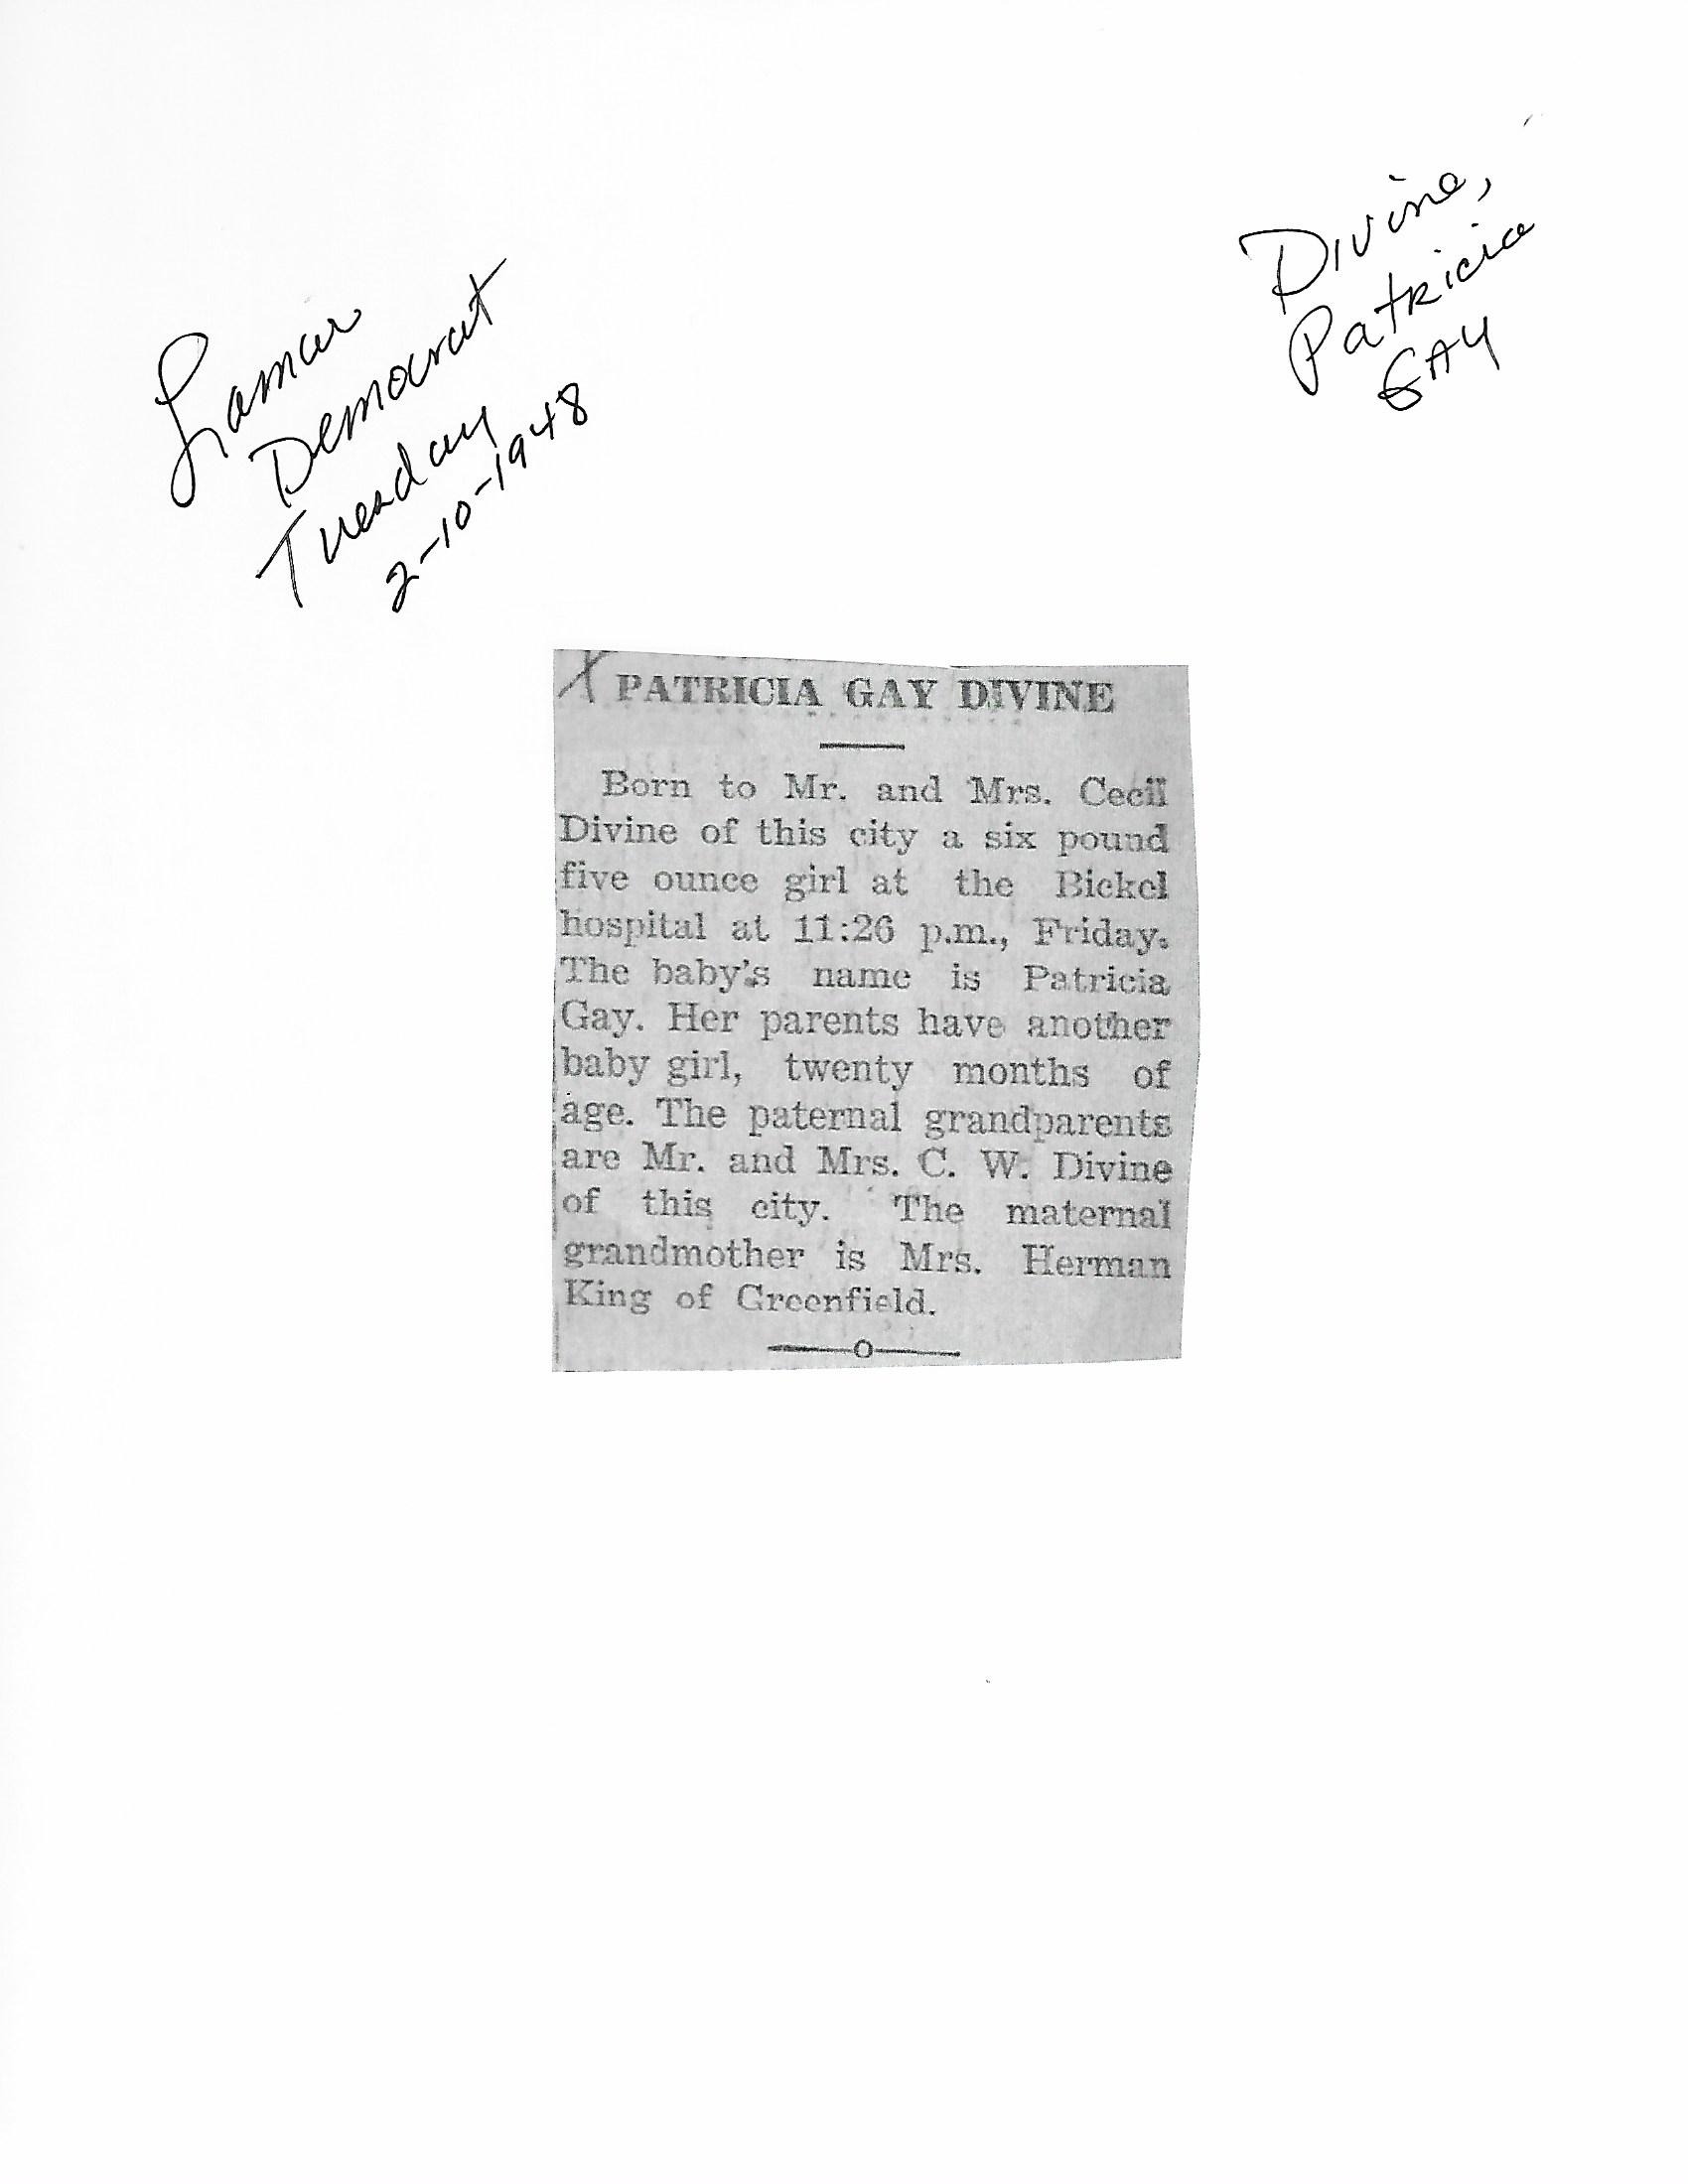 Divine,
Patricia
GAY
Lamar
Democrat
Tuesday
2-10-1948
X PATRICIA GAY DIVINE
Born to Mr. and Mrs. Cecil
Divine of this city a six pound
five ounce girl at the Bickel
hospital at 11:26 p.m., Friday.
The baby's name is Patricia
Gay. Her parents have another
baby girl, twenty months of
age. The paternal grandparents
are Mr. and Mrs. C. W. Divine
of this city. The maternal
grandmother is Mrs. Herman
King of Greenfield.